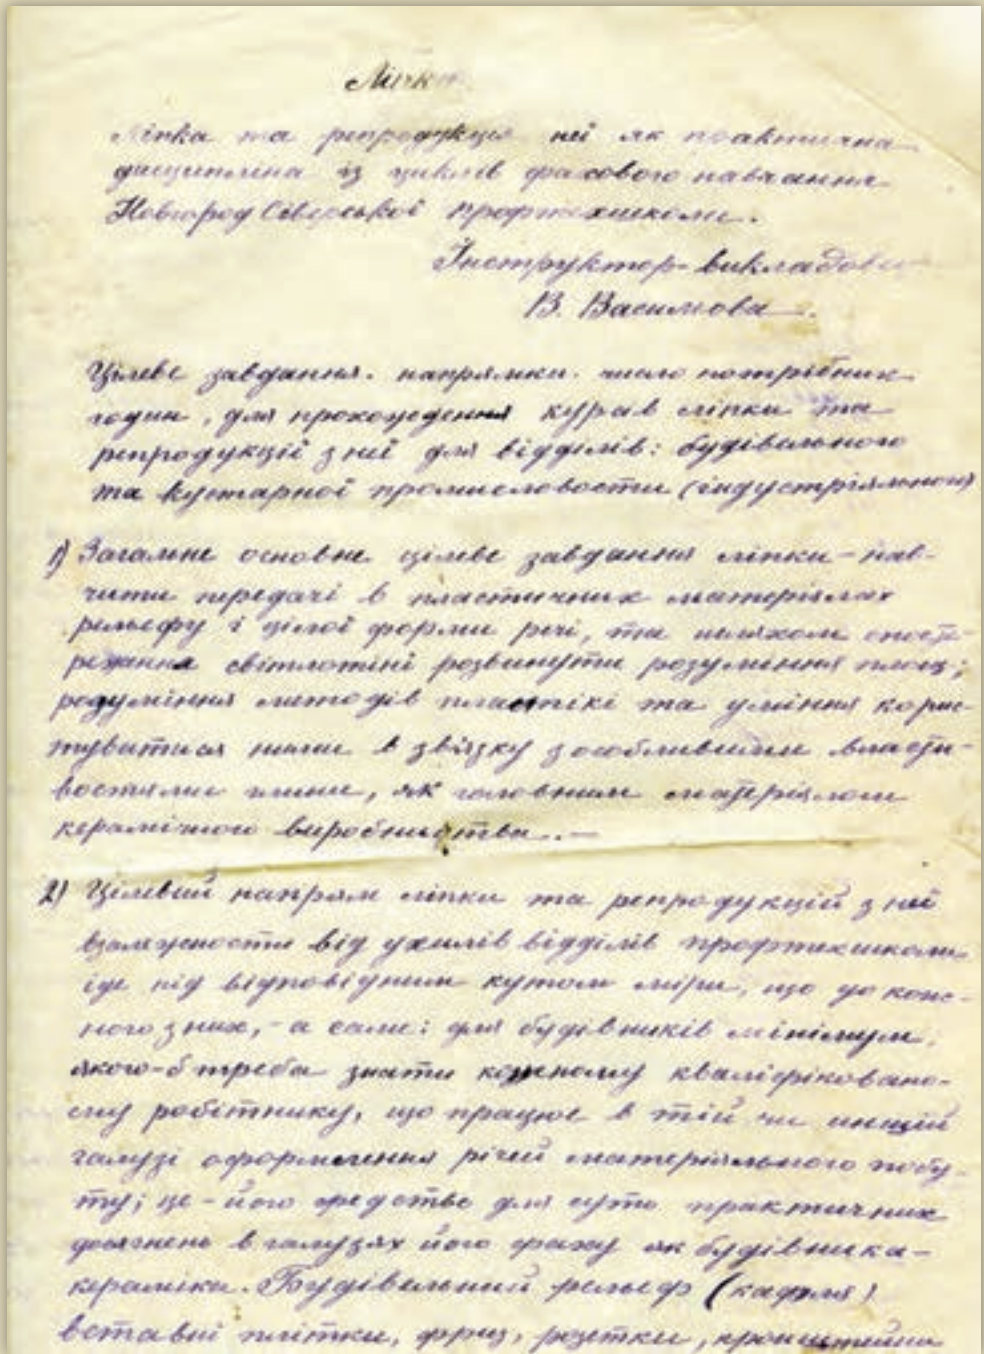 Ліпка
Ліпка та репродукція неї як практична
дисципліна із циклів фахового навчання
Новгород Сіверської профтехшколи.
Інструктор-викладов
В. Васильова.
Цілеве завдання. напрямки. число потрібних
годин, для проходження курсів ліпки та
репродукції з неї для відділів: будівельного
та кустарної промисловости (індустріяльної)
1) Загальне основне цілеве завдання ліпки – нав-
чити передачі в пластичних матеріялах
рельєфу і цілої форми речі, та шляхом спосте-
реження світлотіні розвинути розуміння площ;
розуміння методів пластікі та уміння корис-
туватися ними в звязку з особливими власти-
востями глини, як головним матеріялом
керамічного виробництва. –
2) Цілевий напрям ліпки та репродукцій з неї
взалежности від ухилів відділів профтехшколи
іде під відповідним кутом міри, що до кож-
ного з них, – а саме: для будівників мінімум,
якого-б треба знати кожному кваліфіковано-
му робітнику, що працює в тій чи инщій
галузі оформлення річей матеріяльного побу-
ту; це – його средство для суто практичних
досягнень в галузях його фаху як будівника-
кераміка. Будівельний рельєф (кафля)
вставні плітки, фриз, розетки, кронштейни